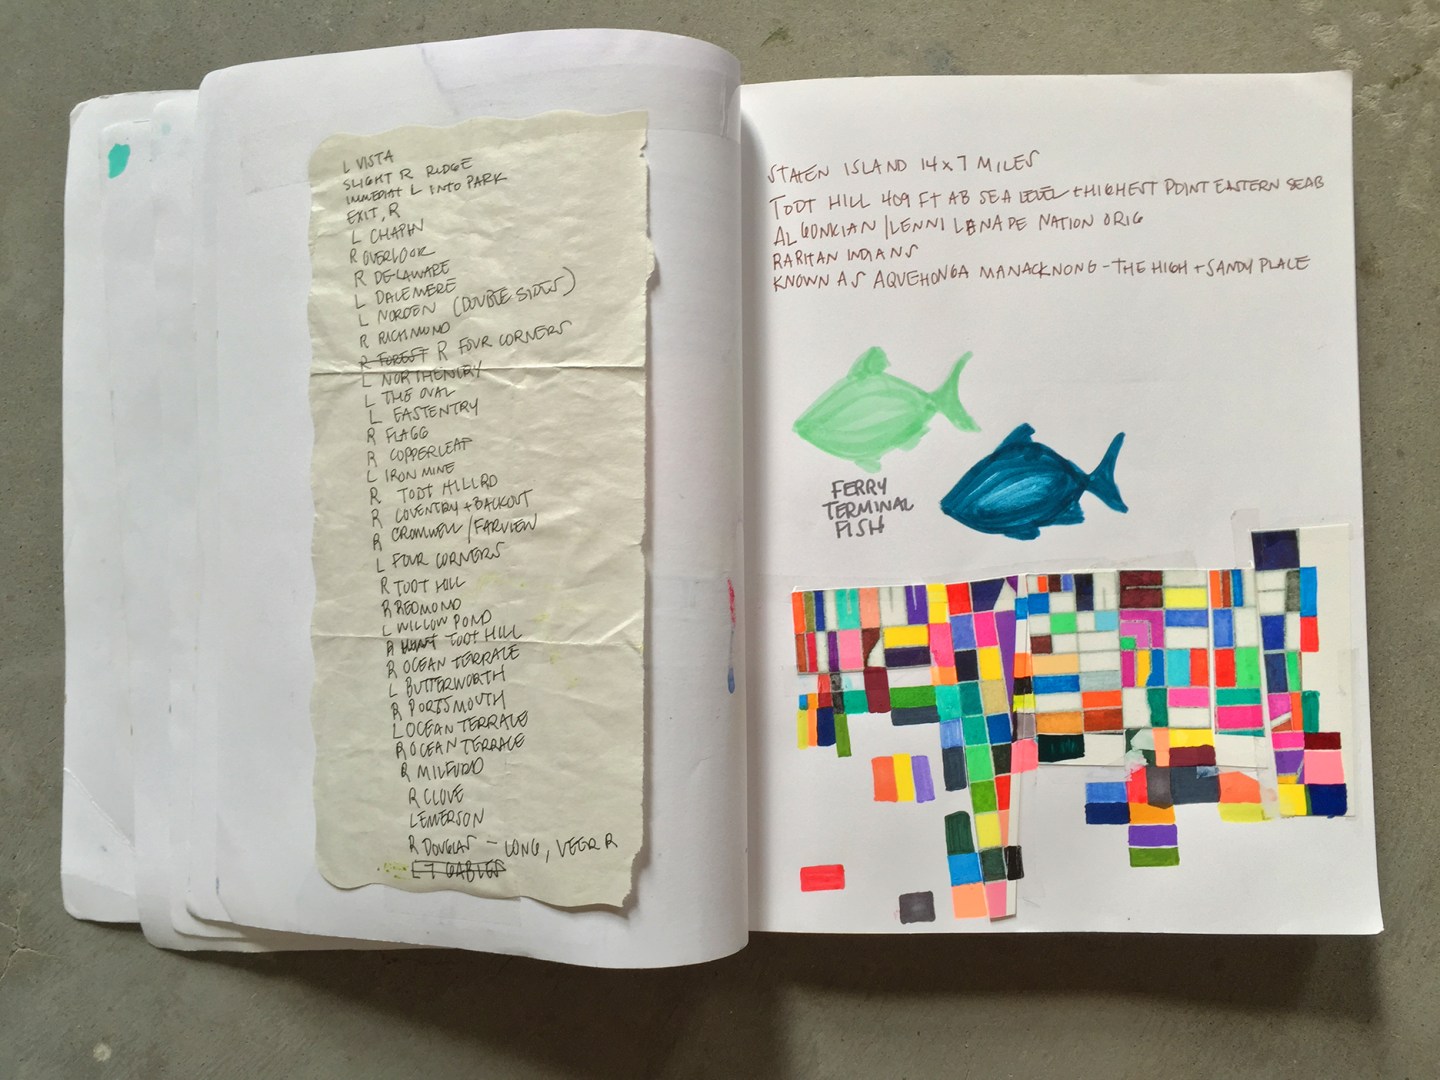 L VISTA
SLIGHT R RIDGE
IMMEDIAT L INTO PARK
EXIT, R
L CHAPIN
R OVERLOOK
R DELAWARE
L DALEMERE
L NORDEN (DOUBLE SIDES)
R RICHMOND
R FOREST R FOUR CORNERS
L NORTHENTRY
L THE OVAL
L EASTENTRY
R FLAGG
R COPPERLEAF
L IRON MINE
R TODT HILL RD
R COVENTRY + BACKOUT
R CROMWELL/FARVIEW
L FOUR CORNERS
R TODT HILL
R REDMOND
L WILLOW POND
R TODT HILL
R OCEAN TERRALE
L BUTTERWORTH
R PORTSMOUTH
L OCEAN TERRALE
R OCEAN TERRALE
R MILFORD
R CLOVE
L EMERSON
R DOUGLAS - LONG, VEER R
L 7 GABLES
STATEN ISLAND 14 x 7 MILES
TODT HILL 409 FT AB SEA LEVEL + HIGHEST POINT EASTERN SEAB
ALGONKIAN/LENNI LENAPE NATION ORIG
RARITAN INDIANS
KNOWN AS AQUEHONGA MANACKNONG - THE HIGH + SANDY PLACE
FERRY
TERMINAL
FISH